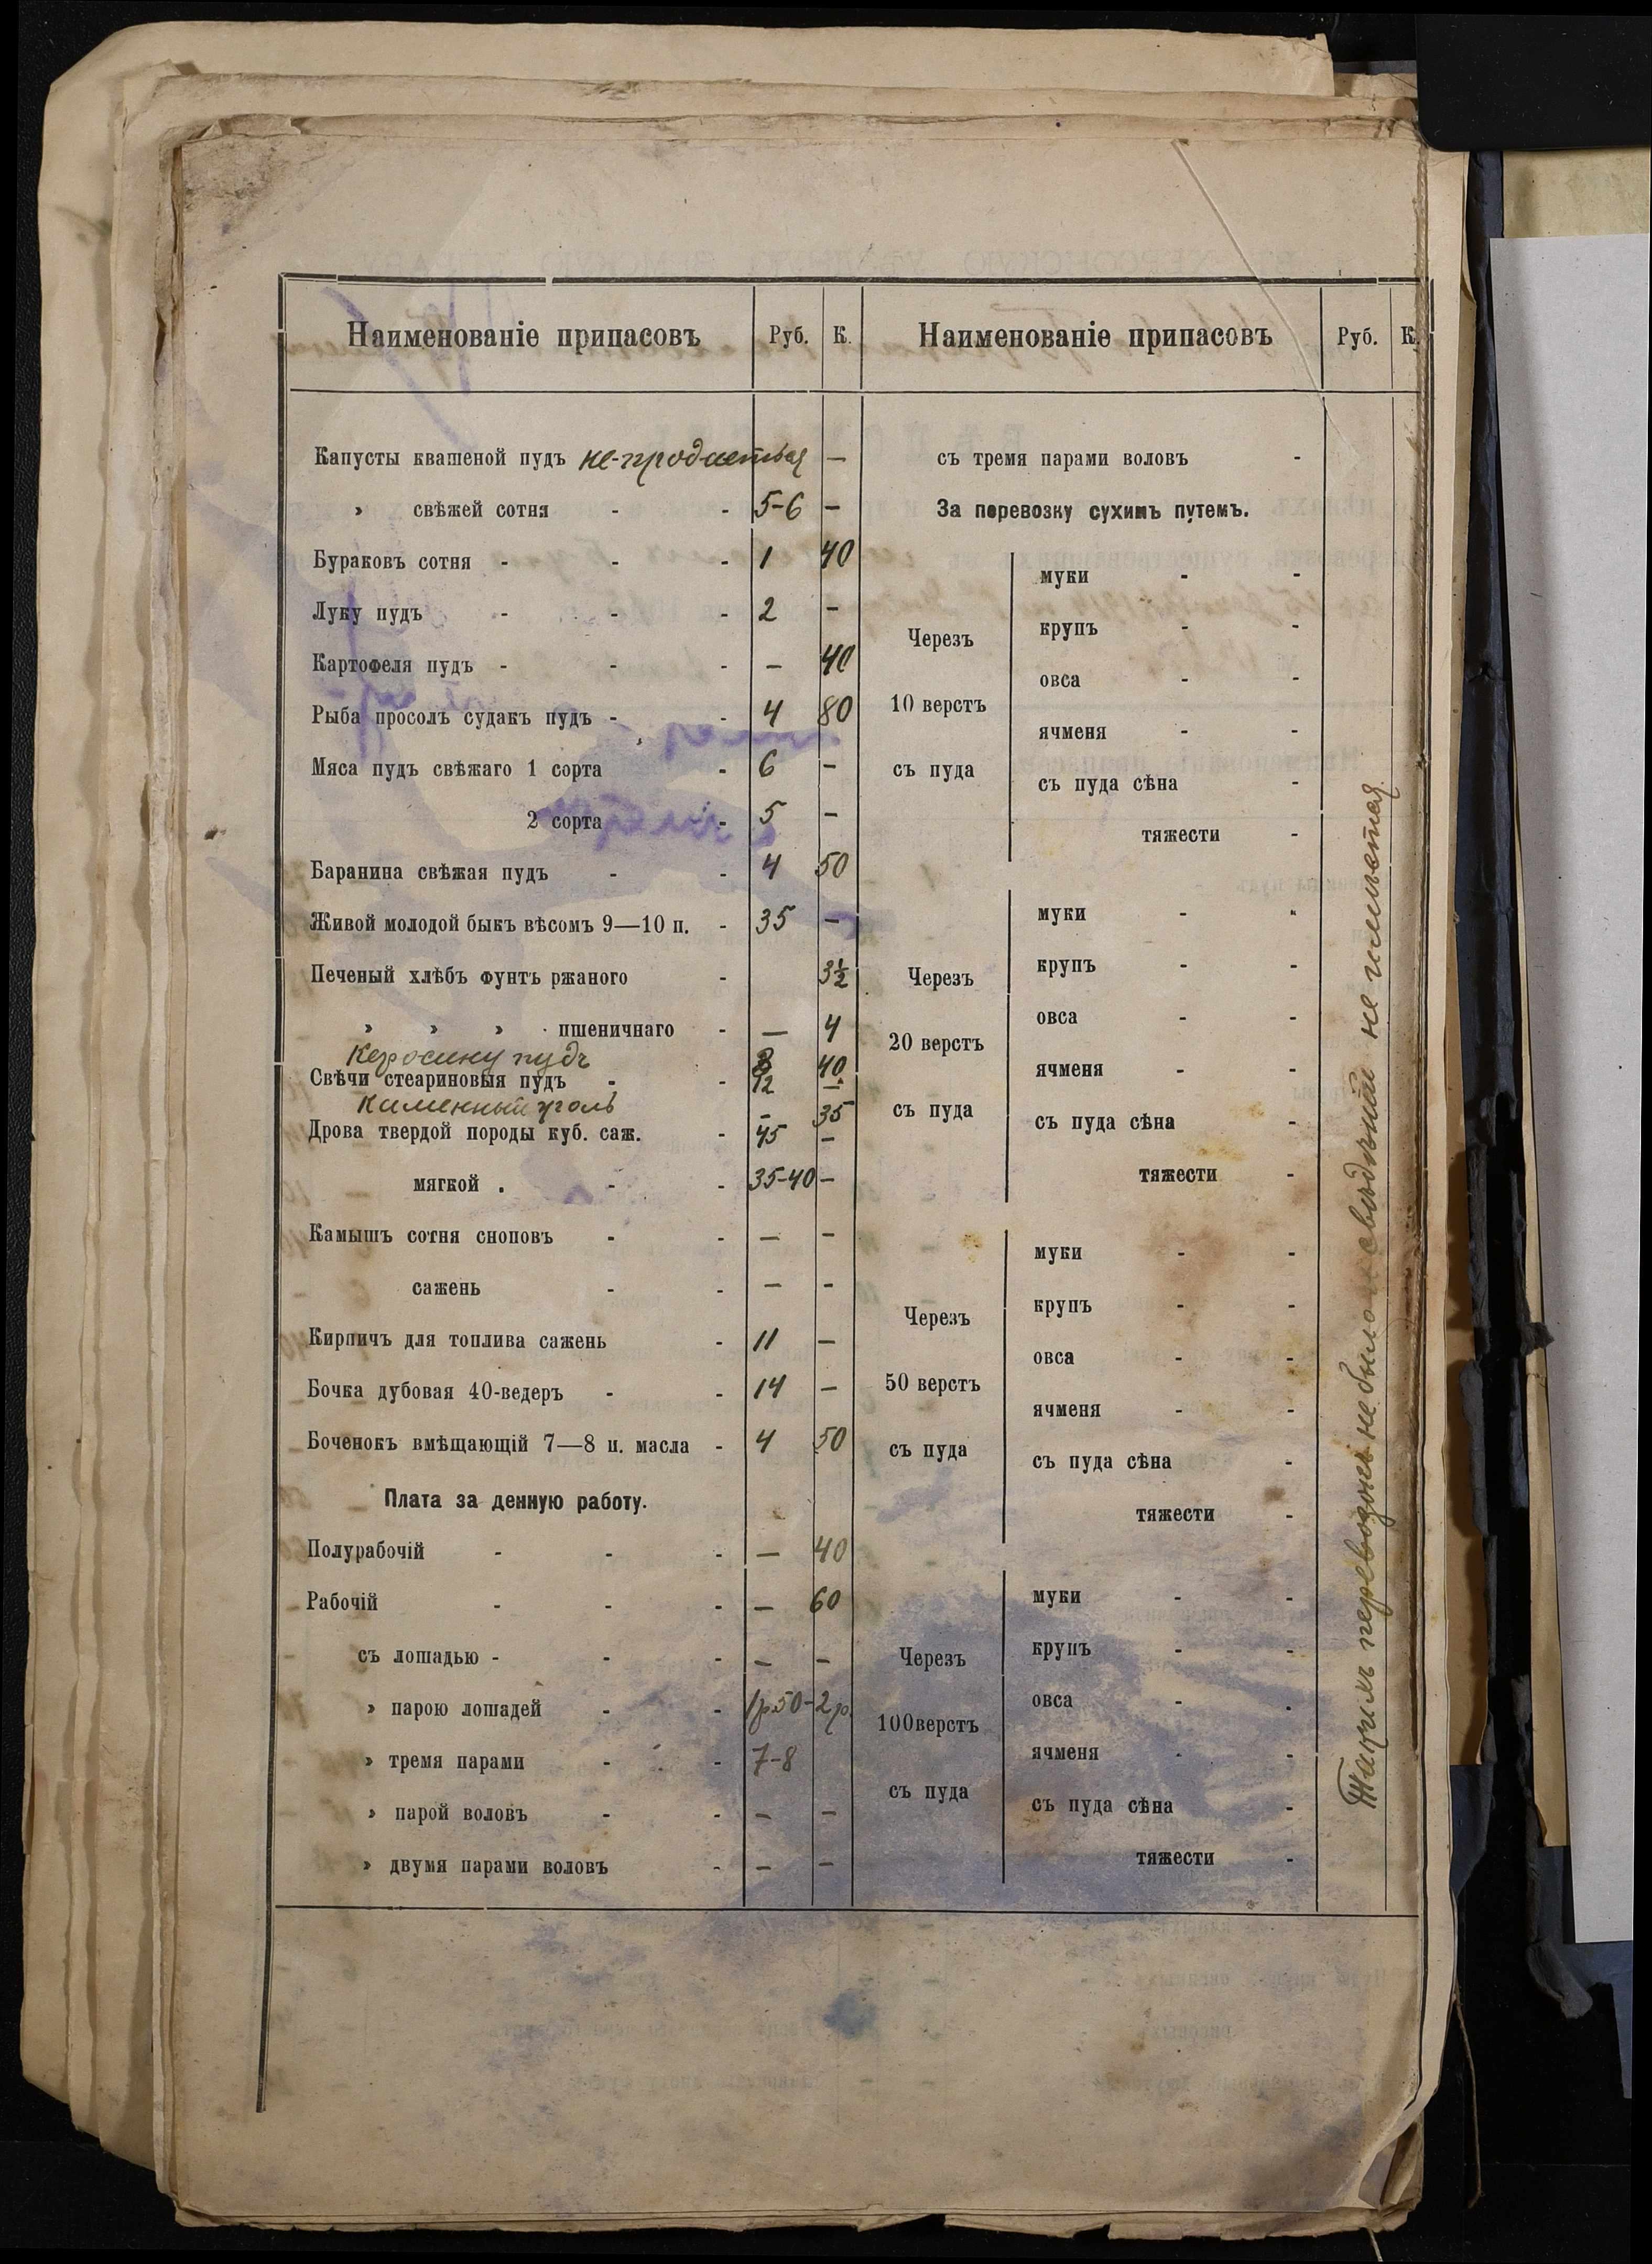 Наименованіе припасовъ Руб. К.
Капусты квашеной пудъ не продается —
» свѣжей сотня - - 5-6 —
Бураковъ сотня - - - 1 40
Луку пудъ - - - 2 —
Картофеля пудъ - - - — 40
Рыба просолъ судакъ пудъ - - 4 80
Мяса пудъ свѣжаго 1 сорта - 6 —
2 сорта - 5 —
Баранина свѣжая пудъ - - 4 50
Живой молодой быкъ вѣсомъ 9—10 п. - 35 —
Печеный хлѣбъ фунтъ ржаного - 3½
» » » пшеничнаго - — 4
Керосину пудъ 40
Свѣчи стеариновыя пудъ - - 12 —
Каменный уголь - 35
Дрова твердой породы куб. саж. - 45 —
мягкой . - - 35-40 —
Камышъ сотня сноповъ - - — —
сажень - - — —
Кирпичъ для топлива сажень - 11 —
Бочка дубовая 40-ведеръ - - 14 —
Боченокъ вмѣщающій 7—8 п. масла - 4 50
Плата за денную работу.
Полурабочій - - - — 40
Рабочій - - - — 60
съ лошадью - - - — —
» парою лошадей - - 1р.50-2р.
» тремя парами - - 7-8
» парой воловъ - - — —
» двумя парами воловъ - — —
Наименованіе припасовъ Руб. К.
съ тремя парами воловъ -
За перевозку сухимъ путемъ.
Черезъ
10 верстъ
съ пуда
муки - -
крупъ - -
овса - -
ячменя - -
съ пуда сѣна -
тяжести -
Черезъ
20 верстъ
съ пуда
муки - -
крупъ - -
овса - -
ячменя - -
съ пуда сѣна -
тяжести -
Черезъ
50 верстъ
съ пуда
муки - -
крупъ - -
овса - -
ячменя - -
съ пуда сѣна -
тяжести -
Черезъ
100верстъ
съ пуда
муки - -
крупъ - -
овса - -
ячменя - -
съ пуда сѣна -
тяжести -
перевозокъ не было и свѣдѣній не имѣется